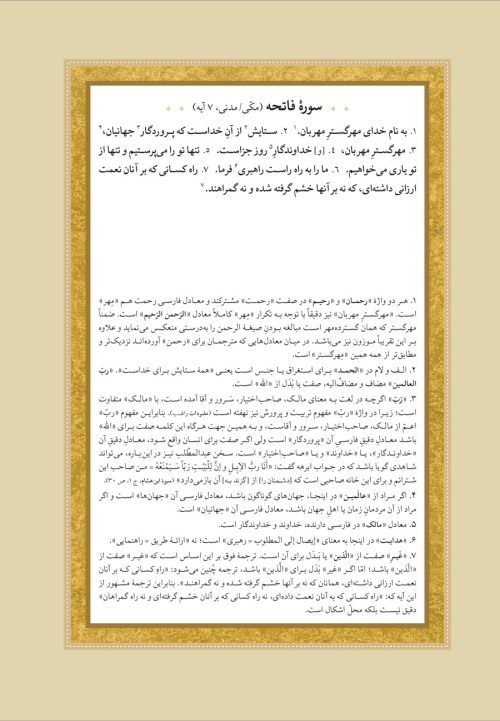 سورهٔ فاتحه (مکّی/ مدنی، ۷ آیه)
۱. به نام خدای مهرگسترِ مهربان.۱ ۲. ستایش۲ از آنِ خداست که پروردگار۳ جهانیان،۴
۳. مهرگسترِ مهربان، ۴. [و] خداوندگارِ۵ روز جزاست. ۵. تنها تو را می‌پرستیم و تنها از
تو یاری می‌خواهیم. ۶. ما را به راه راست راهبری۶ فرما. ۷. راه کسانی که بر آنان نعمت
ارزانی داشته‌ای، که نه بر آنها خشم گرفته شده و نه گمراهند.۷
۱. هر دو واژهٔ «رحمان» و «رحیم» در صفت «رحمت» مشترکند و معادل فارسی رحمت هم «مِهر»
است. «مهرگسترِ مهربان» نیز دقیقاً با توجه به تکرار «مِهر» کاملاً معادل «الرّحمن الرّحیم» است. ضمناً
مهرگستر که همان گسترده‌مهر است مبالغه بودن صیغهٔ الرحمن را به‌درستی منعکس می‌نماید و علاوه
بر این تقریباً موزون نیز می‌باشد. در میان معادل‌هایی که مترجمان برای «رحمن» آورده‌اند نزدیک‌تر و
مطابق‌تر از همه همین «مِهرگستر» است.
۲. الـف و لام در «الحمـد» بـرای اسـتغراق یـا جنـس اسـت یعنـی «همهٔ ستایش بـرای خداست». «ربّ
العالمین» مضاف و مضافٌ‌الیه، صفت یا بَدَل از «الله» است.
۳. «رَبّ» اگرچه در لغت به معنای مالک، صاحب‌اختیار، سَرور و آقا آمده است، با «مالک» متفاوت
است؛ زیرا در واژهٔ «ربّ» مفهوم تربیت و پرورش نیز نهفته است (مفردات راغب). بنابراین مفهوم «ربّ»
اعمّ از مالـک، صاحب‌اختیار، سـرور و آقاسـت، و به همیـن جهت هرگاه این کلمـه صفت بـرای «الله»
باشد معادل دقیق فارسیِ آن «پروردگار» است ولی اگر صفت برای انسان واقع شود، معادل دقیق آن
«خداوندگار»، یـا «خداوند» و یـا «صاحب‌اختیار» اسـت. سخن عبدالمطّلب نیـز در این‌بـاره، می‌تواند
شاهدی گویا باشد که در جواب ابرهه گفت: «أَنَا رَبُّ الإِبِلِ وَ إنَّ لِلْبَیْتِ رَبّاً سَیَمْنَعُهُ = من صاحب این
شترانم و برای این خانه صاحبی است که [دشمنان را] از [گزند به] آن بازمی‌دارد» (سیرهٔ ابن‌هشام، ج ۱، ص ۳۰).
۴. اگر مراد از «عالَمین» در اینجا، جهان‌های گوناگون باشد، معادل فارسی آن «جهان‌ها» است و اگر
مراد از آن مردمانِ زمان یا اهل جهان باشد، معادل فارسی آن «جهانیان» است.
۵. معادل «مالک» در فارسی دارنده، خداوند و خداوندگار است.
۶. «هدایت» در اینجا به معنای «إیصال إلی المطلوب = رهبری» است؛ نه «ارائهٔ طریق = راهنمایی».
۷. «غَیـر» صفت از «الّذین» یا بَـدَل برای آن است. ترجمهٔ فوق بر این اساس است که «غیـر» صفت از
«الّذین» باشد؛ امّا اگـر «غیر» بَدَل بـرای «الّذین» باشد، ترجمه چنین می‌شود: «راه کسانی کـه بر آنان
نعمت ارزانی داشته‌ای، همانان که نه بر آنها خشم گرفته شده و نه گمراهند». بنابراین ترجمهٔ مشهور از
این آیه که: «راه کسانی که به آنان نعمت داده‌ای، نه راه کسانی که بر آنان خشم گرفته‌ای و نه راه گمراهان»
دقیق نیست بلکه محلّ اشکال است.